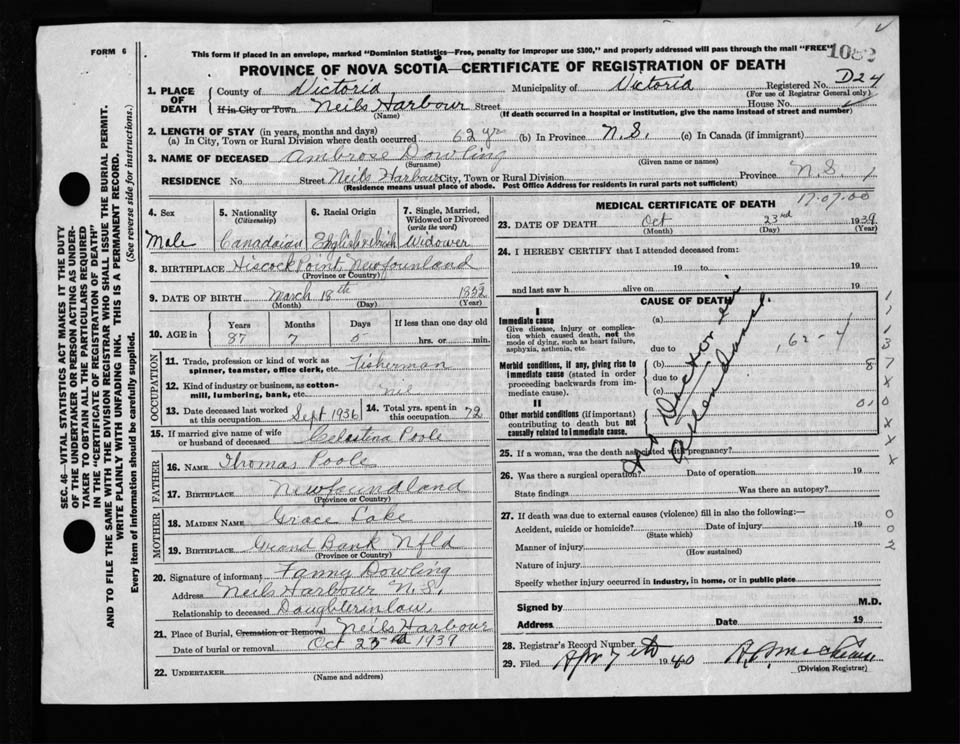 FORM 6
This form if placed in an envelope, marked "Dominion Statistics—Free, penalty for improper use $300," and properly addressed will pass through the mail "FREE"
1052
PROVINCE OF NOVA SCOTIA—CERTIFICATE OF REGISTRATION OF DEATH
1. PLACE OF DEATH County of Victoria Municipality of Victoria Registered No. D24
(For use of Registrar General only)
If in City or Town Neils Harbour Street House No.
(Name) (If death occurred in a hospital or institution, give the name instead of street and number)
2. LENGTH OF STAY (in years, months and days)
(a) In City, Town or Rural Division where death occurred 62 yr (b) In Province N.S. (c) In Canada (if immigrant)
3. NAME OF DECEASED Ambrose Dowling
(Surname) (Given name or names)
RESIDENCE No. Street Neils Harbour City, Town or Rural Division Province N.S.
(Residence means usual place of abode. Post Office Address for residents in rural parts not sufficient)
4. Sex 5. Nationality (Citizenship) 6. Racial Origin 7. Single, Married, Widowed or Divorced (write the word)
Male Canadaian Widower
8. BIRTHPLACE Hiscock Point, Newfounland
(Province or Country)
9. DATE OF BIRTH March 18th 1852
(Month) (Day) (Year)
10. AGE in Years Months Days If less than one day old
87 7 5 hrs. or min.
OCCUPATION
11. Trade, profession or kind of work as spinner, teamster, office clerk, etc. Fisherman
12. Kind of industry or business, as cotton-mill, lumbering, bank, etc. nil
13. Date deceased last worked at this occupation Sept 1936 14. Total yrs. spent in this occupation 72
15. If married give name of wife or husband of deceased Celestina Poole
FATHER
16. NAME Thomas Poole
17. BIRTHPLACE Newfoundland
(Province or Country)
MOTHER
18. MAIDEN NAME Grace Lake
19. BIRTHPLACE Grand Bank Nfld
(Province or Country)
20. Signature of informant Fanny Dowling
Address Neils Harbour N.S.
Relationship to deceased Daughterinlaw
21. Place of Burial, Cremation or Removal Neils Harbour
Date of burial or removal Oct 25 1939
22. UNDERTAKER
(Name and address)
MEDICAL CERTIFICATE OF DEATH
17.07.00
23. DATE OF DEATH Oct 23rd 1939
(Month) (Day) (Year)
24. I HEREBY CERTIFY that I attended deceased from:
19 to 19
and last saw h alive on 19
CAUSE OF DEATH
I
Immediate cause (a)
Give disease, injury or complication which caused death, not the mode of dying, such as heart failure, asphyxia, asthenia, etc.
due to
Morbid conditions, if any, giving rise to immediate cause (stated in order proceeding backwards from immediate cause).
(b)
due to
(c)
II
Other morbid conditions (if important) contributing to death but not causally related to immediate cause.
No Doctor in Attendance.
62 -
25. If a woman, was the death associated with pregnancy?
26. Was there a surgical operation? Date of operation 19
State findings Was there an autopsy?
27. If death was due to external causes (violence) fill in also the following:—
Accident, suicide or homicide? Date of injury 19
(State which)
Manner of injury
(How sustained)
Nature of injury
Specify whether injury occurred in industry, in home, or in public place
Signed by M.D.
Address Date 19
28. Registrar's Record Number 5
29. Filed Apr 7th 1940
(Division Registrar)
SEC. 46—VITAL STATISTICS ACT MAKES IT THE DUTY
OF THE UNDERTAKER OR PERSON ACTING AS UNDER-
TAKER TO OBTAIN ALL THE PARTICULARS REQUIRED
IN THE "CERTIFICATE OF REGISTRATION OF DEATH"
AND TO FILE THE SAME WITH THE DIVISION REGISTRAR WHO SHALL ISSUE THE BURIAL PERMIT.
WRITE PLAINLY WITH UNFADING INK. THIS IS A PERMANENT RECORD.
Every item of information should be carefully supplied. (See reverse side for instructions.)